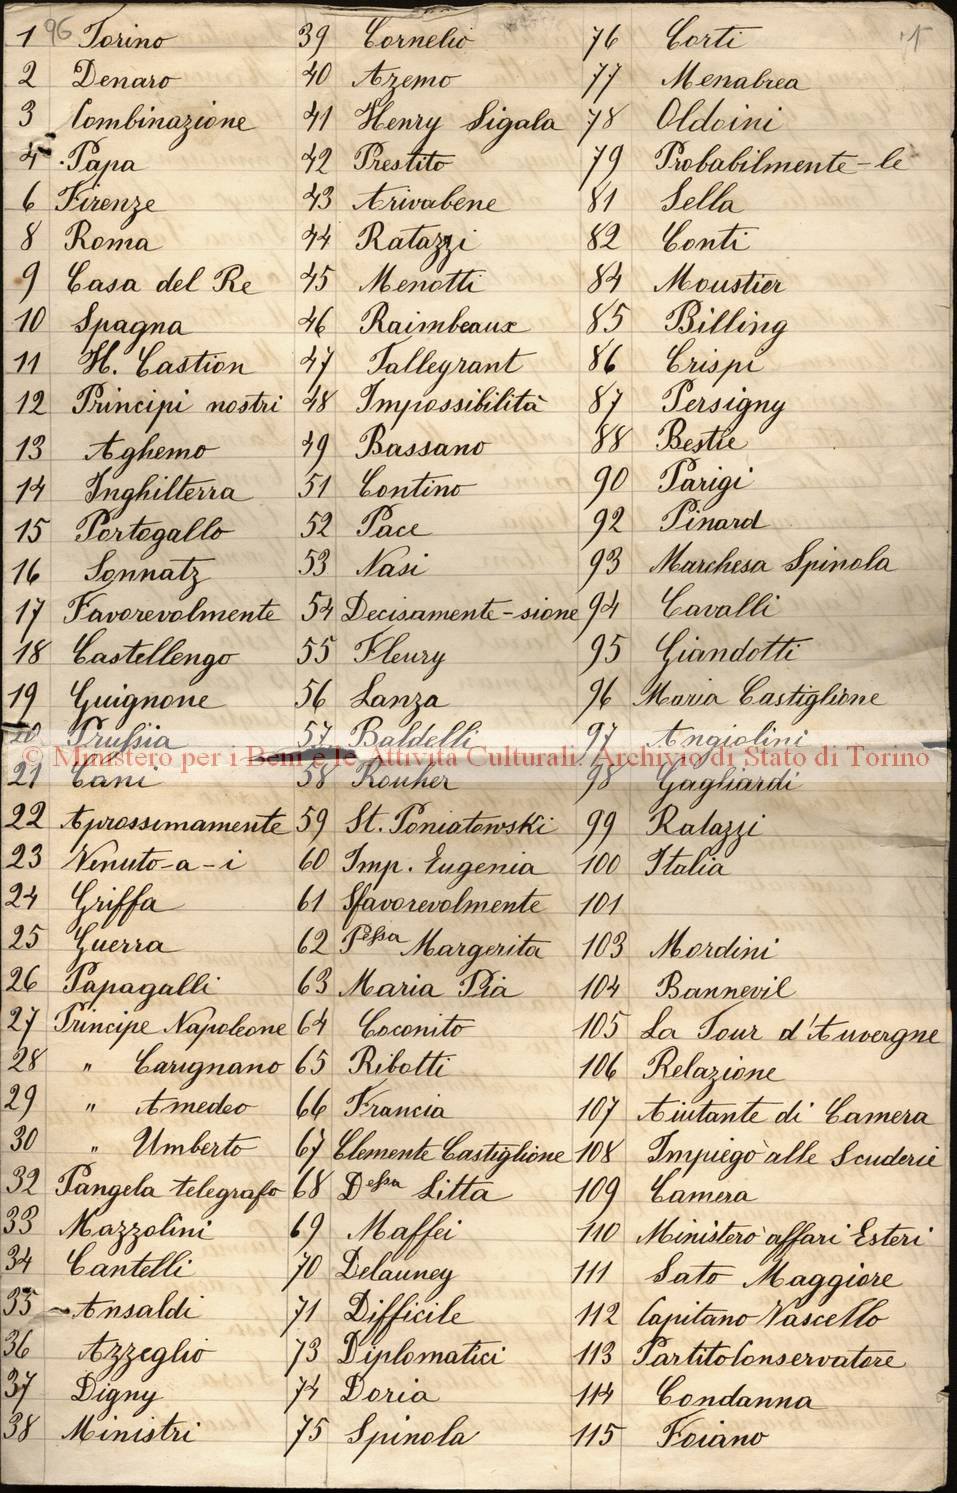 96
1 Torino
2 Denaro
3 Combinazione
4 Papa
6 Firenze
8 Roma
9 Casa del Re
10 Spagna
11 H. Castion
12 Principi nostri
13 Aghemo
14 Inghilterra
15 Portogallo
16 Sonnatz
17 Favorevolmente
18 Castellengo
19 Guignone
20 Prussia
21 Cani
22 Aprossimamente
23 Venuto-a-i
24 Griffa
25 Guerra
26 Papagalli
27 Principe Napoleone
28 " Carignano
29 " Amedeo
30 " Umberto
32 Pangela telegrafo
33 Mazzolini
34 Cantelli
35 Ansaldi
36 Azzeglio
37 Digny
38 Ministri
39 Cornelio
40 Azemo
41 Henry Sigala
42 Prestito
43 Arivabene
44 Ratazzi
45 Menotti
46 Raimbeaux
47 Talleyrant
48 Impossibilità
49 Bassano
51 Contino
52 Pace
53 Nasi
54 Decisamente-sione
55 Fleury
56 Lanza
57 Baldelli
58 Rouher
59 St. Poniatowski
60 Imp. Eugenia
61 Sfavorevolmente
62 Pessa Margerita
63 Maria Pia
64 Coconito
65 Ribotti
66 Francia
67 Clemente Castiglione
68 Dessa Litta
69 Maffei
70 Delauney
71 Difficile
73 Diplomatici
74 Doria
75 Spinola
76 Corti
77 Menabrea
78 Oldoini
79 Probabilmente-le
81 Sella
82 Conti
84 Moustier
85 Billing
86 Crispi
87 Persigny
88 Bestie
90 Parigi
92 Pinard
93 Marchesa Spinola
94 Cavalli
95 Giandotti
96 Maria Castiglione
97 Angiolini
98 Gagliardi
99 Ratazzi
100 Italia
101
103 Mordini
104 Bannevil
105 La Tour d'Auvergne
106 Relazione
107 Aiutante di Camera
108 Impiego alle Scuderie
109 Camera
110 Ministero affari Esteri
111 Sato Maggiore
112 Capitano Vascello
113 Partito Conservatore
114 Condanna
115 Foiano
© Ministero per i Beni e le Attività Culturali. Archivio di Stato di Torino